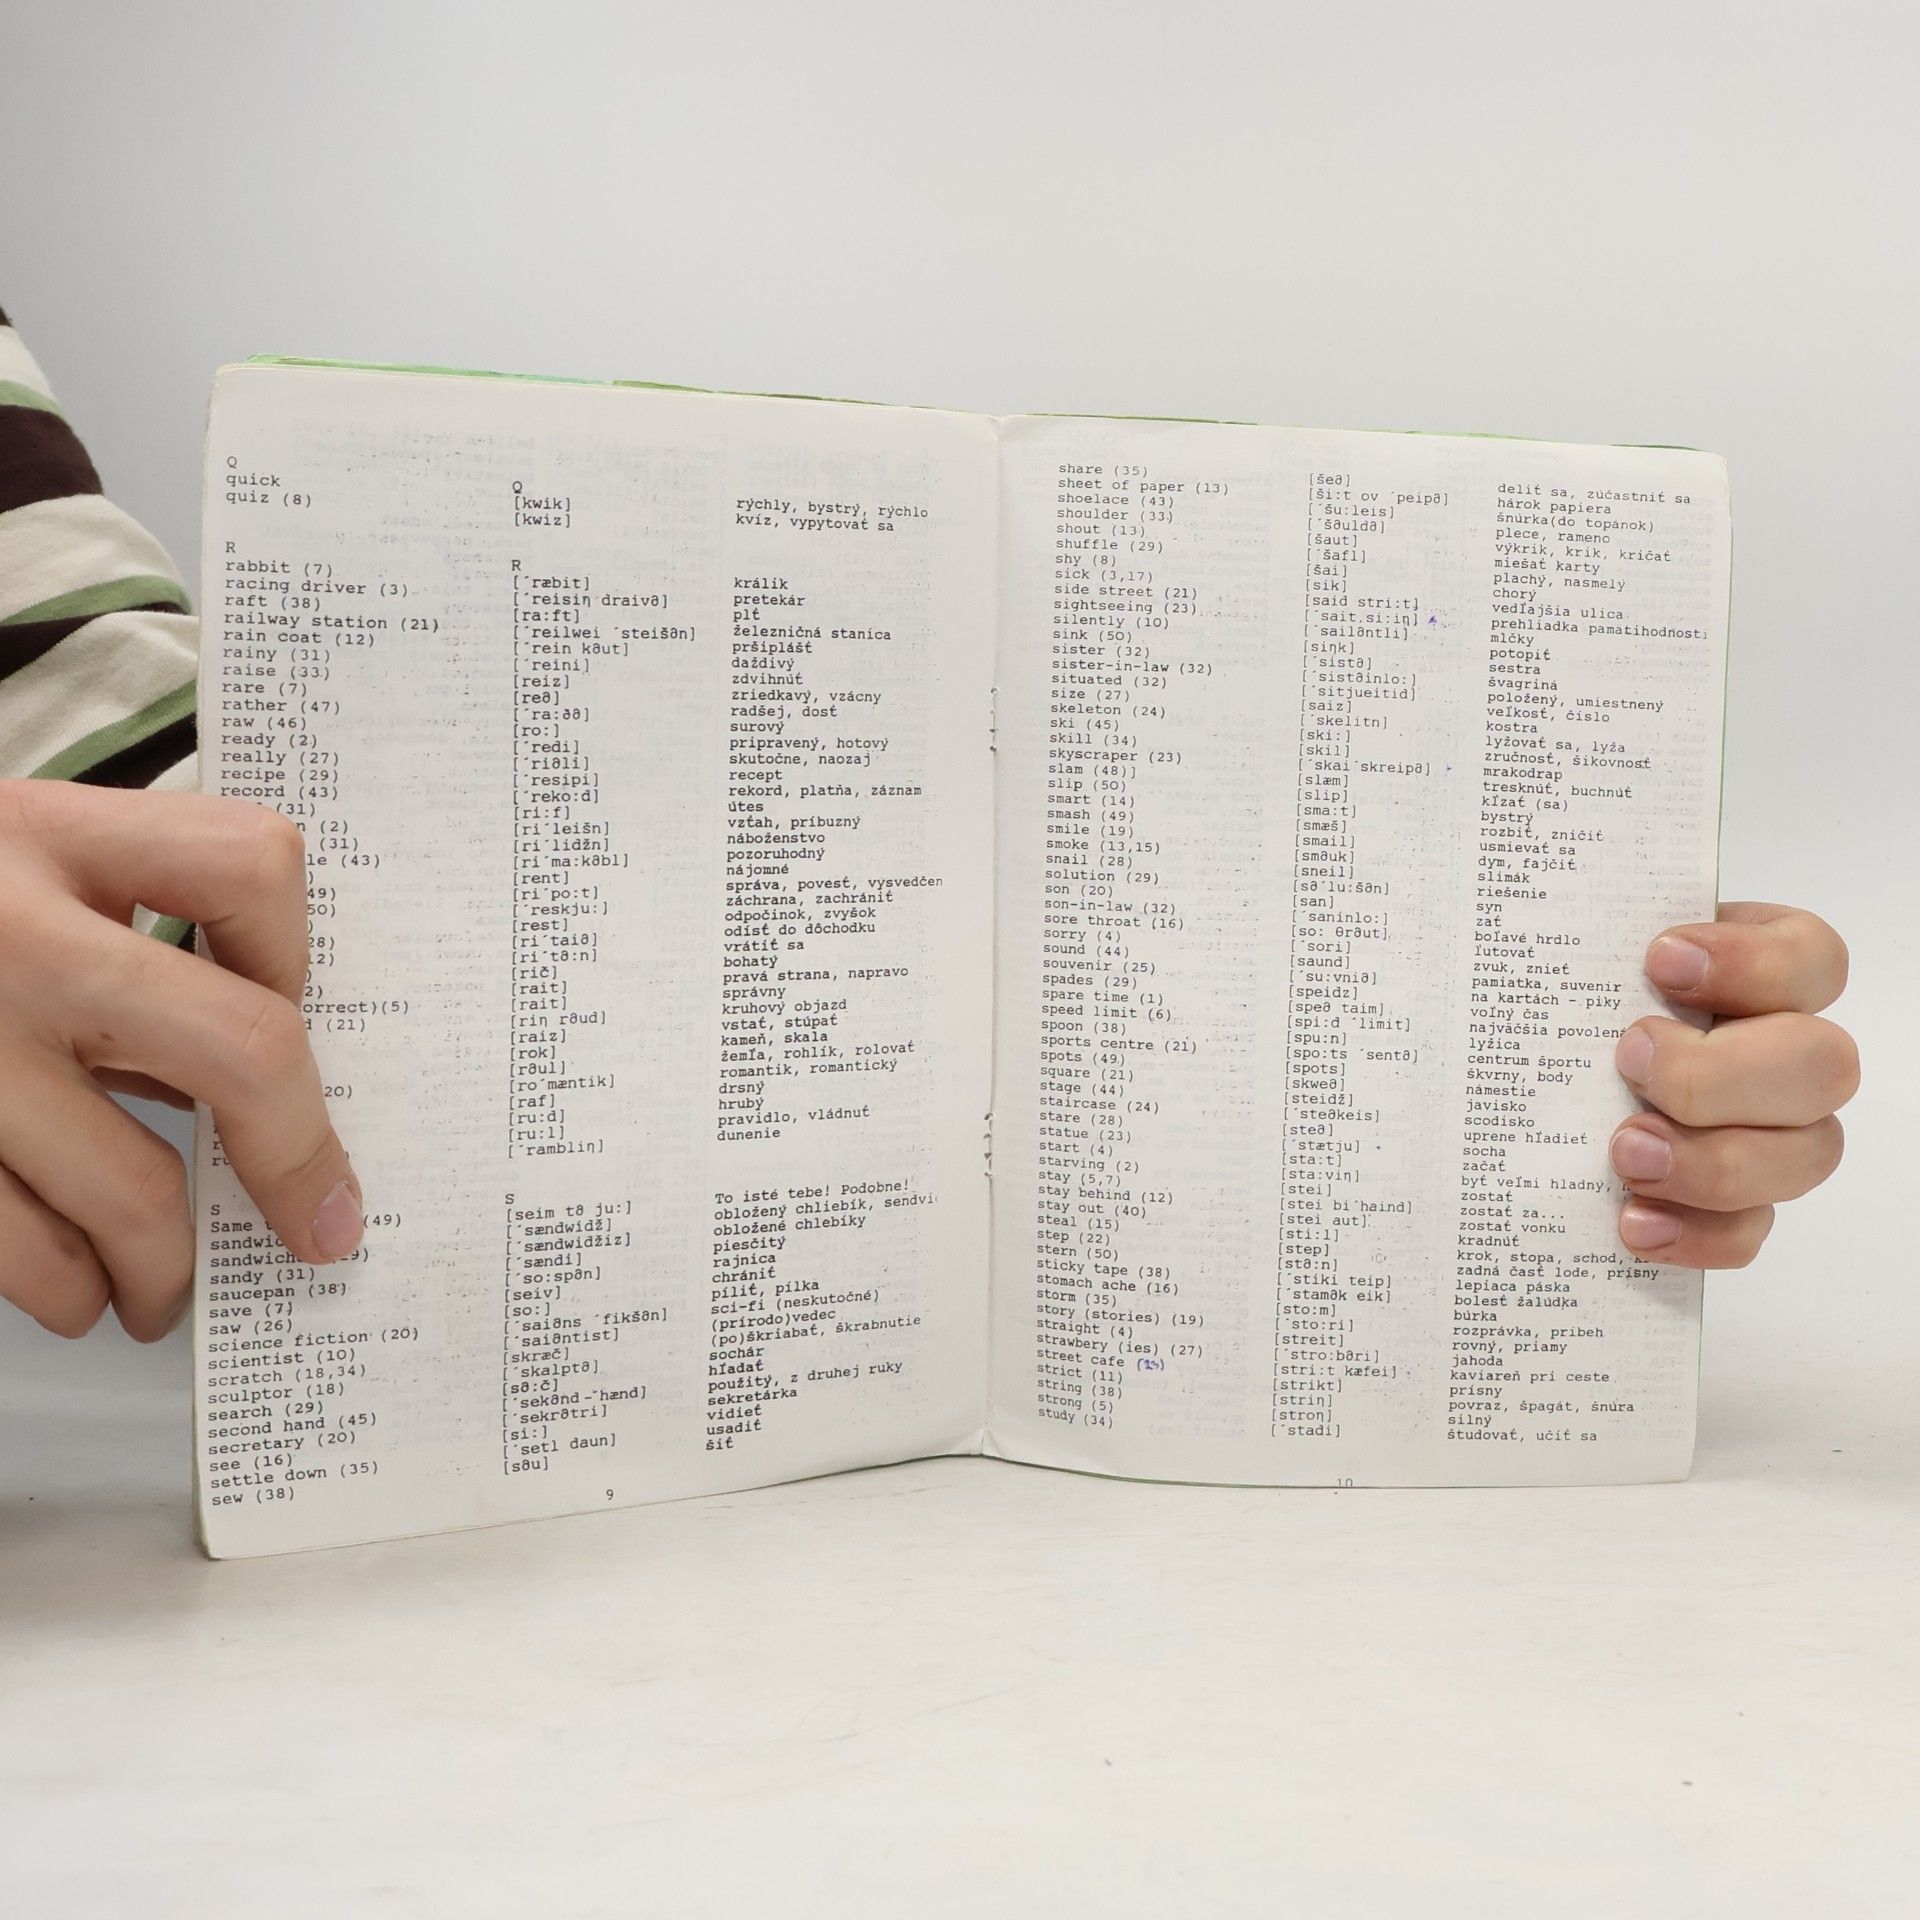 Q Q
quick [kwik] rýchly, bystrý, rýchlo
quiz (8) [kwiz] kvíz, vypytovať sa
R R
rabbit (7) [´ræbit] králik
racing driver (3) [´reisiŋ draivə] pretekár
raft (38) [ra:ft] plť
railway station (21) [´reilwei ´steišən] železničná stanica
rain coat (12) [´rein kəut] pršiplášť
rainy (31) [´reini] daždivý
raise (33) [reiz] zdvihnúť
rare (7) [reə] zriedkavý, vzácny
rather (47) [´ra:ðə] radšej, dosť
raw (46) [ro:] surový
ready (2) [´redi] pripravený, hotový
really (27) [´riəli] skutočne, naozaj
recipe (29) [´resipi] recept
record (43) [´reko:d] rekord, platňa, záznam
(31) [ri:f] útes
(2) [ri´leišn] vzťah, príbuzný
(31) [ri´lidžn] náboženstvo
(43) [ri´ma:kəbl] pozoruhodný
[rent] nájomné
[ri´po:t] správa, povesť, vysvedčen
[´reskju:] záchrana, zachrániť
[rest] odpočinok, zvyšok
[ri´taiə] odísť do dôchodku
[ri´tə:n] vrátiť sa
[rič] bohatý
[rait] pravá strana, napravo
(5) [rait] správny
(21) [riŋ rəud] kruhový objazd
[raiz] vstať, stúpať
[rok] kameň, skala
[rəul] žemľa, rohlík, rolovať
[ro´mæntik] romantik, romantický
[raf] drsný
[ru:d] hrubý
[ru:l] pravidlo, vládnuť
[´rambliŋ] dunenie
S S
Same (49) [seim tə ju:] To isté tebe! Podobne!
[´sændwidž] obložený chliebík,
[´sændwidžiz] obložené chlebíky
sandy (31) [´sændi] piesčitý
saucepan (38) [´so:spən] rajnica
save (7) [seiv] chrániť
saw (26) [so:] píliť, pílka
science fiction (20) [´saiəns ´fikšən] sci-fi (neskutočné)
scientist (10) [´saiəntist] (prírodo)vedec
scratch (18,34) [skræč] (po)škriabať, škrabnutie
sculptor (18) [´skalptə] sochár
search (29) [sə:č] hľadať
second hand (45) [´sekənd-´hænd] použitý, z druhej ruky
secretary (20) [´sekrətri] sekretárka
see (16) [si:] vidieť
settle down (35) [´setl daun] usadiť
sew (38) [səu] šiť
9
share (35) [šeə] deliť sa, zúčastniť sa
sheet of paper (13) [ši:t ov ´peipə] hárok papiera
shoelace (43) [´šu:leis] šnúrka(do topánok)
shoulder (33) [´šəuldə] plece, rameno
shout (13) [šaut] výkrik, krik, kričať
shuffle (29) [´šafl] miešať karty
shy (8) [šai] plachý, nasmelý
sick (3,17) [sik] chorý
side street (21) [said stri:t] vedľajšia ulica
sightseeing (23) [´sait,si:iŋ] prehliadka pamätihodností
silently (10) [´sailəntli] mlčky
sink (50) [siŋk] potopiť
sister (32) [´sistə] sestra
sister-in-law (32) [´sistəinlo:] švagriná
situated (32) [´sitjueitid] položený, umiestnený
size (27) [saiz] veľkosť, číslo
skeleton (24) [´skelitn] kostra
ski (45) [ski:] lyžovať sa, lyža
skill (34) [skil] zručnosť, šikovnosť
skyscraper (23) [´skai´skreipə] mrakodrap
slam (48)] [slæm] tresknúť, buchnúť
slip (50) [slip] kĺzať (sa)
smart (14) [sma:t] bystrý
smash (49) [smæš] rozbiť, zničiť
smile (19) [smail] usmievať sa
smoke (13,15) [sməuk] dym, fajčiť
snail (28) [sneil] slimák
solution (29) [sə´lu:šən] riešenie
son (20) [san] syn
son-in-law (32) [´saninlo:] zať
sore throat (16) [so: θrəut] boľavé hrdlo
sorry (4) [´sori] ľutovať
sound (44) [saund] zvuk, znieť
souvenir (25) [´su:vniə] pamiatka, suvenír
spades (29) [speidz] na kartách - piky
spare time (1) [speə taim] voľný čas
speed limit (6) [spi:d ´limit] najväčšia povolená
spoon (38) [spu:n] lyžica
sports centre (21) [spo:ts ´sentə] centrum športu
spots (49) [spots] škvrny, body
square (21) [skweə] námestie
stage (44) [steidž] javisko
staircase (24) [´steəkeis] scodisko
stare (28) [steə] uprene hľadieť
statue (23) [´stætju] socha
start (4) [sta:t] začať
starving (2) [sta:viŋ] byť veľmi hladný,
stay (5,7) [stei] zostať
stay behind (12) [stei bi´haind] zostať za...
stay out (40) [stei aut] zostať vonku
steal (15) [sti:l] kradnúť
step (22) [step] krok, stopa, schod,
stern (50) [stə:n] zadná časť lode, prísny
sticky tape (38) [´stiki teip] lepiaca páska
stomach ache (16) [´stamək eik] bolesť žalúdka
storm (35) [sto:m] búrka
story (stories) (19) [´sto:ri] rozprávka, príbeh
straight (4) [streit] rovný, priamy
strawbery (ies) (27) [´stro:bəri] jahoda
street cafe (23) [stri:t kæfei] kaviareň pri ceste
strict (11) [strikt] prísny
string (38) [striŋ] povraz, špagát, šnúra
strong (5) [stroŋ] silný
study (34) [´stadi] študovať, učiť sa
10